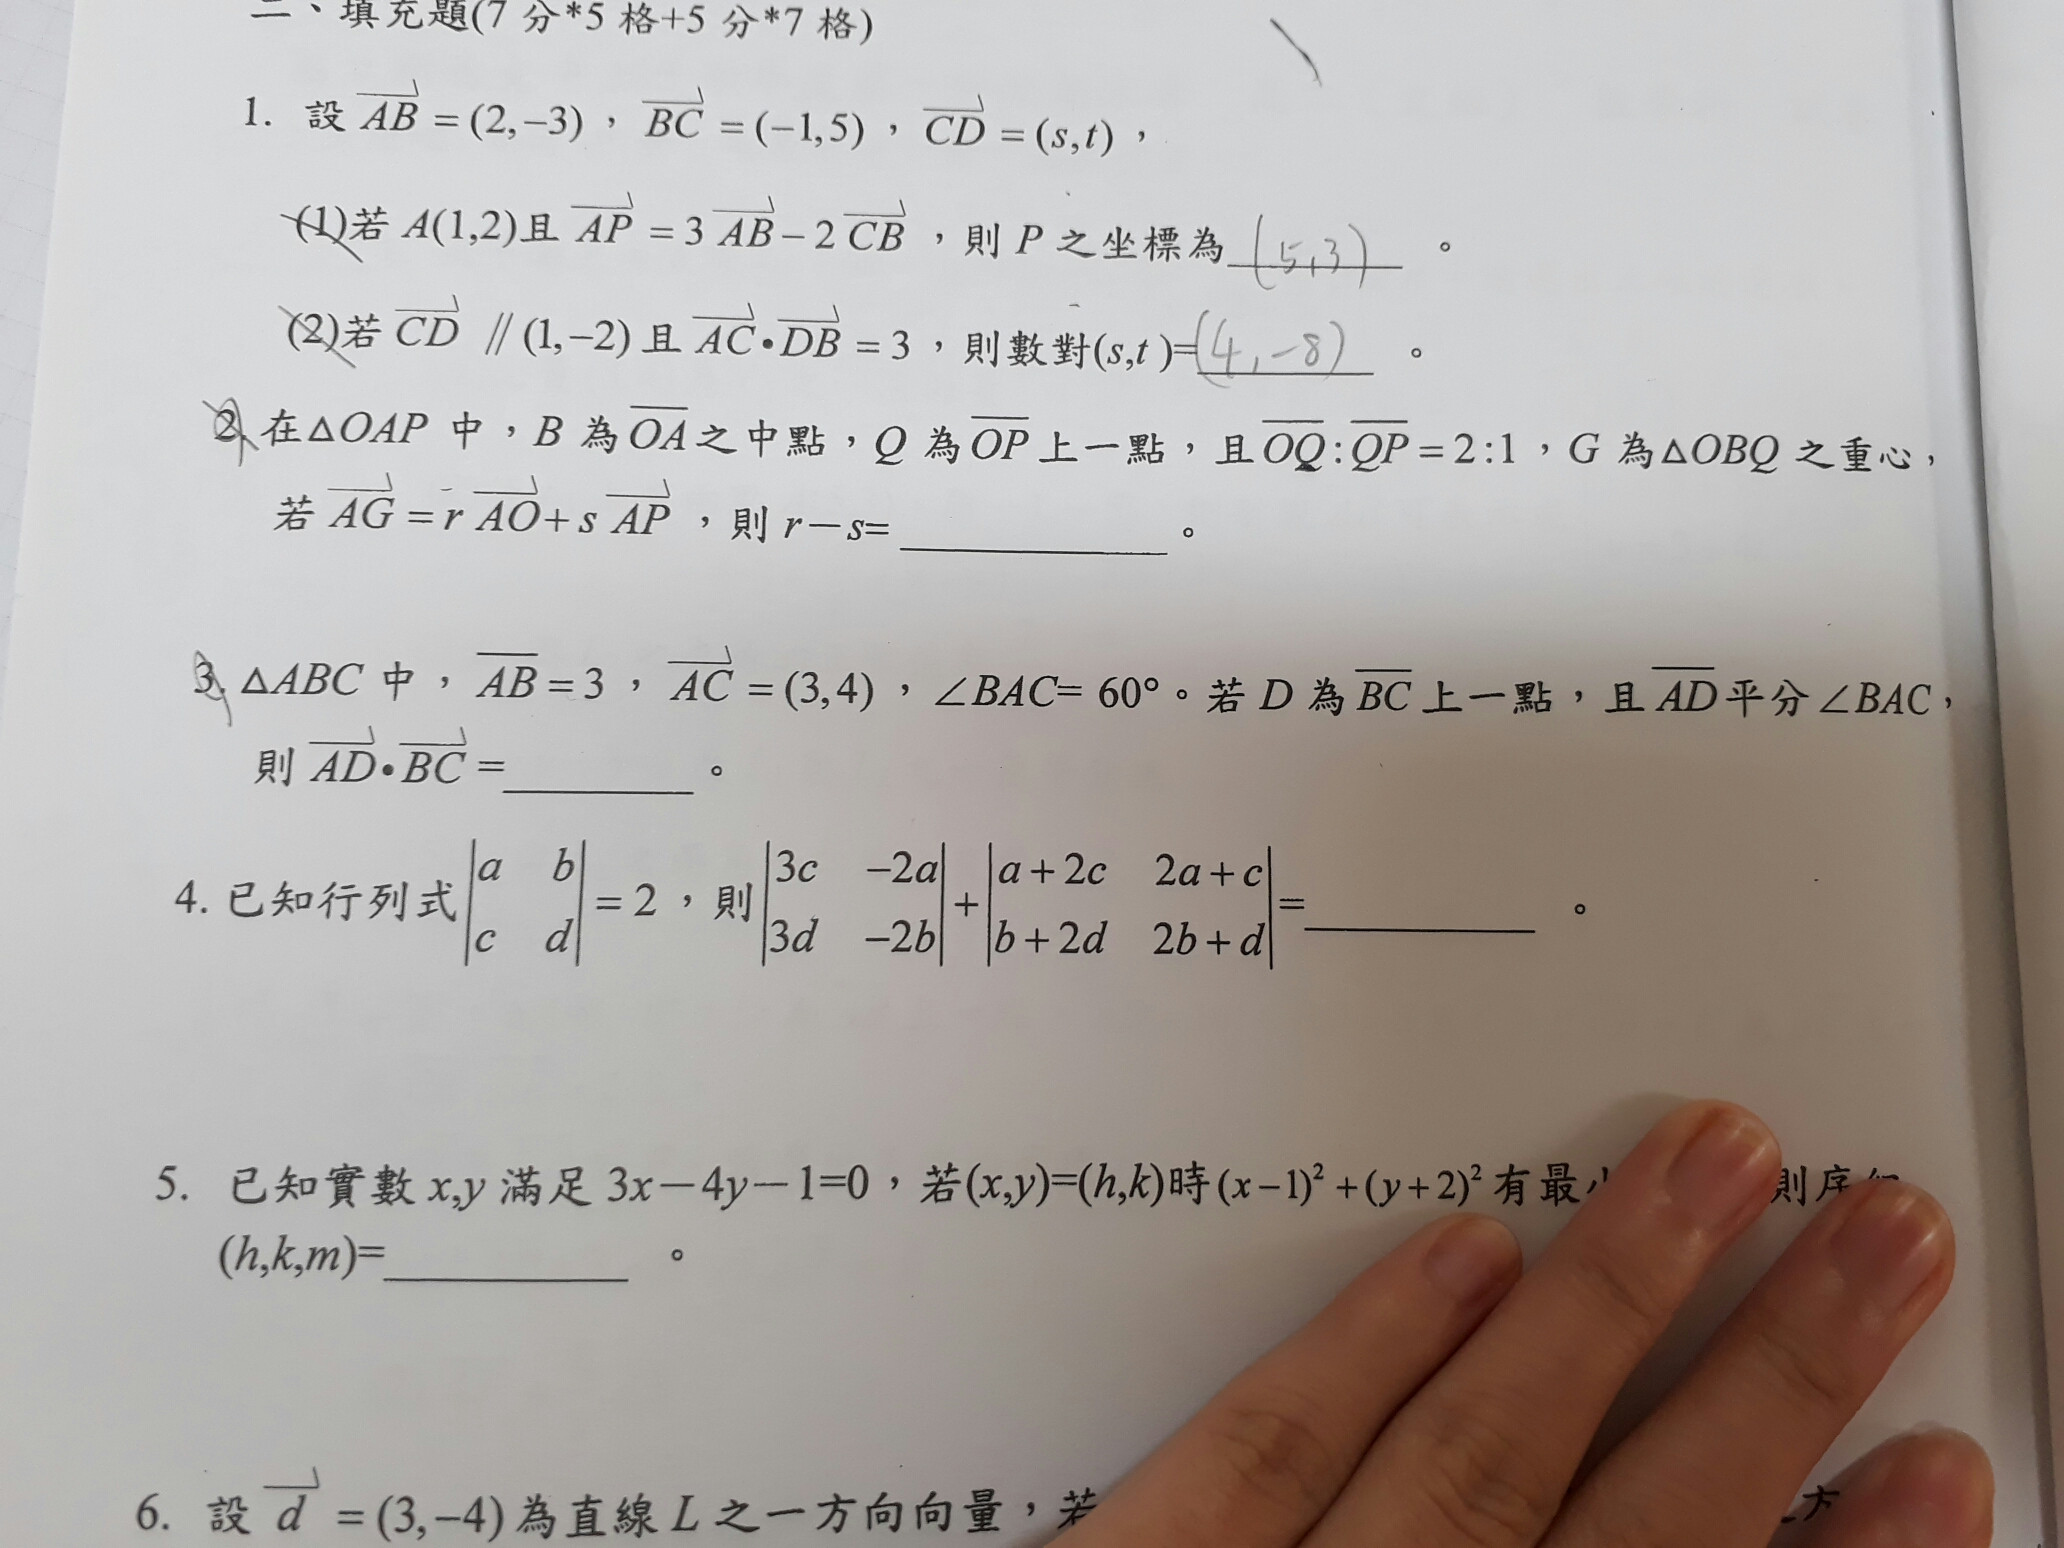 二、填充題(7 分*5 格+5 分*7 格)
1. 設 AB = (2,−3)，BC = (−1,5)，CD = (s,t)，
(1)若 A(1,2)且 AP = 3 AB − 2 CB，則 P 之坐標為 (5,3)。
(2)若 CD // (1,−2) 且 AC•DB = 3，則數對(s,t )=(4,−8)。
2. 在△OAP 中，B 為 OA 之中點，Q 為 OP 上一點，且 OQ : QP = 2 :1，G 為△OBQ 之重心，
若 AG = r AO + s AP，則 r－s=＿＿＿＿。
3. △ABC 中，AB = 3，AC = (3,4)，∠BAC= 60°。若 D 為 BC 上一點，且 AD 平分∠BAC，
則 AD•BC =＿＿＿＿。
4. 已知行列式 |a b; c d| = 2，則 |3c −2a; 3d −2b| + |a+2c 2a+c; b+2d 2b+d| =＿＿＿＿。
5. 已知實數 x,y 滿足 3x－4y－1=0，若(x,y)=(h,k)時 (x−1)²+(y+2)² 有最 則序
(h,k,m)=＿＿＿＿。
6. 設 d = (3,−4) 為直線 L 之一方向向量，若 方